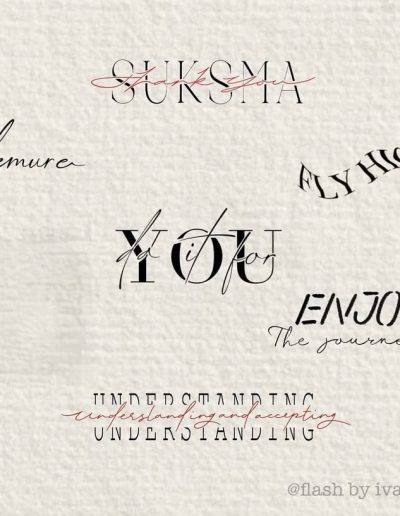 SUKSMA
thank you
emure
FLY HIG
YOU
do it for
ENJO
The journe
UNDERSTANDING
understanding and accepting
@flash by iva